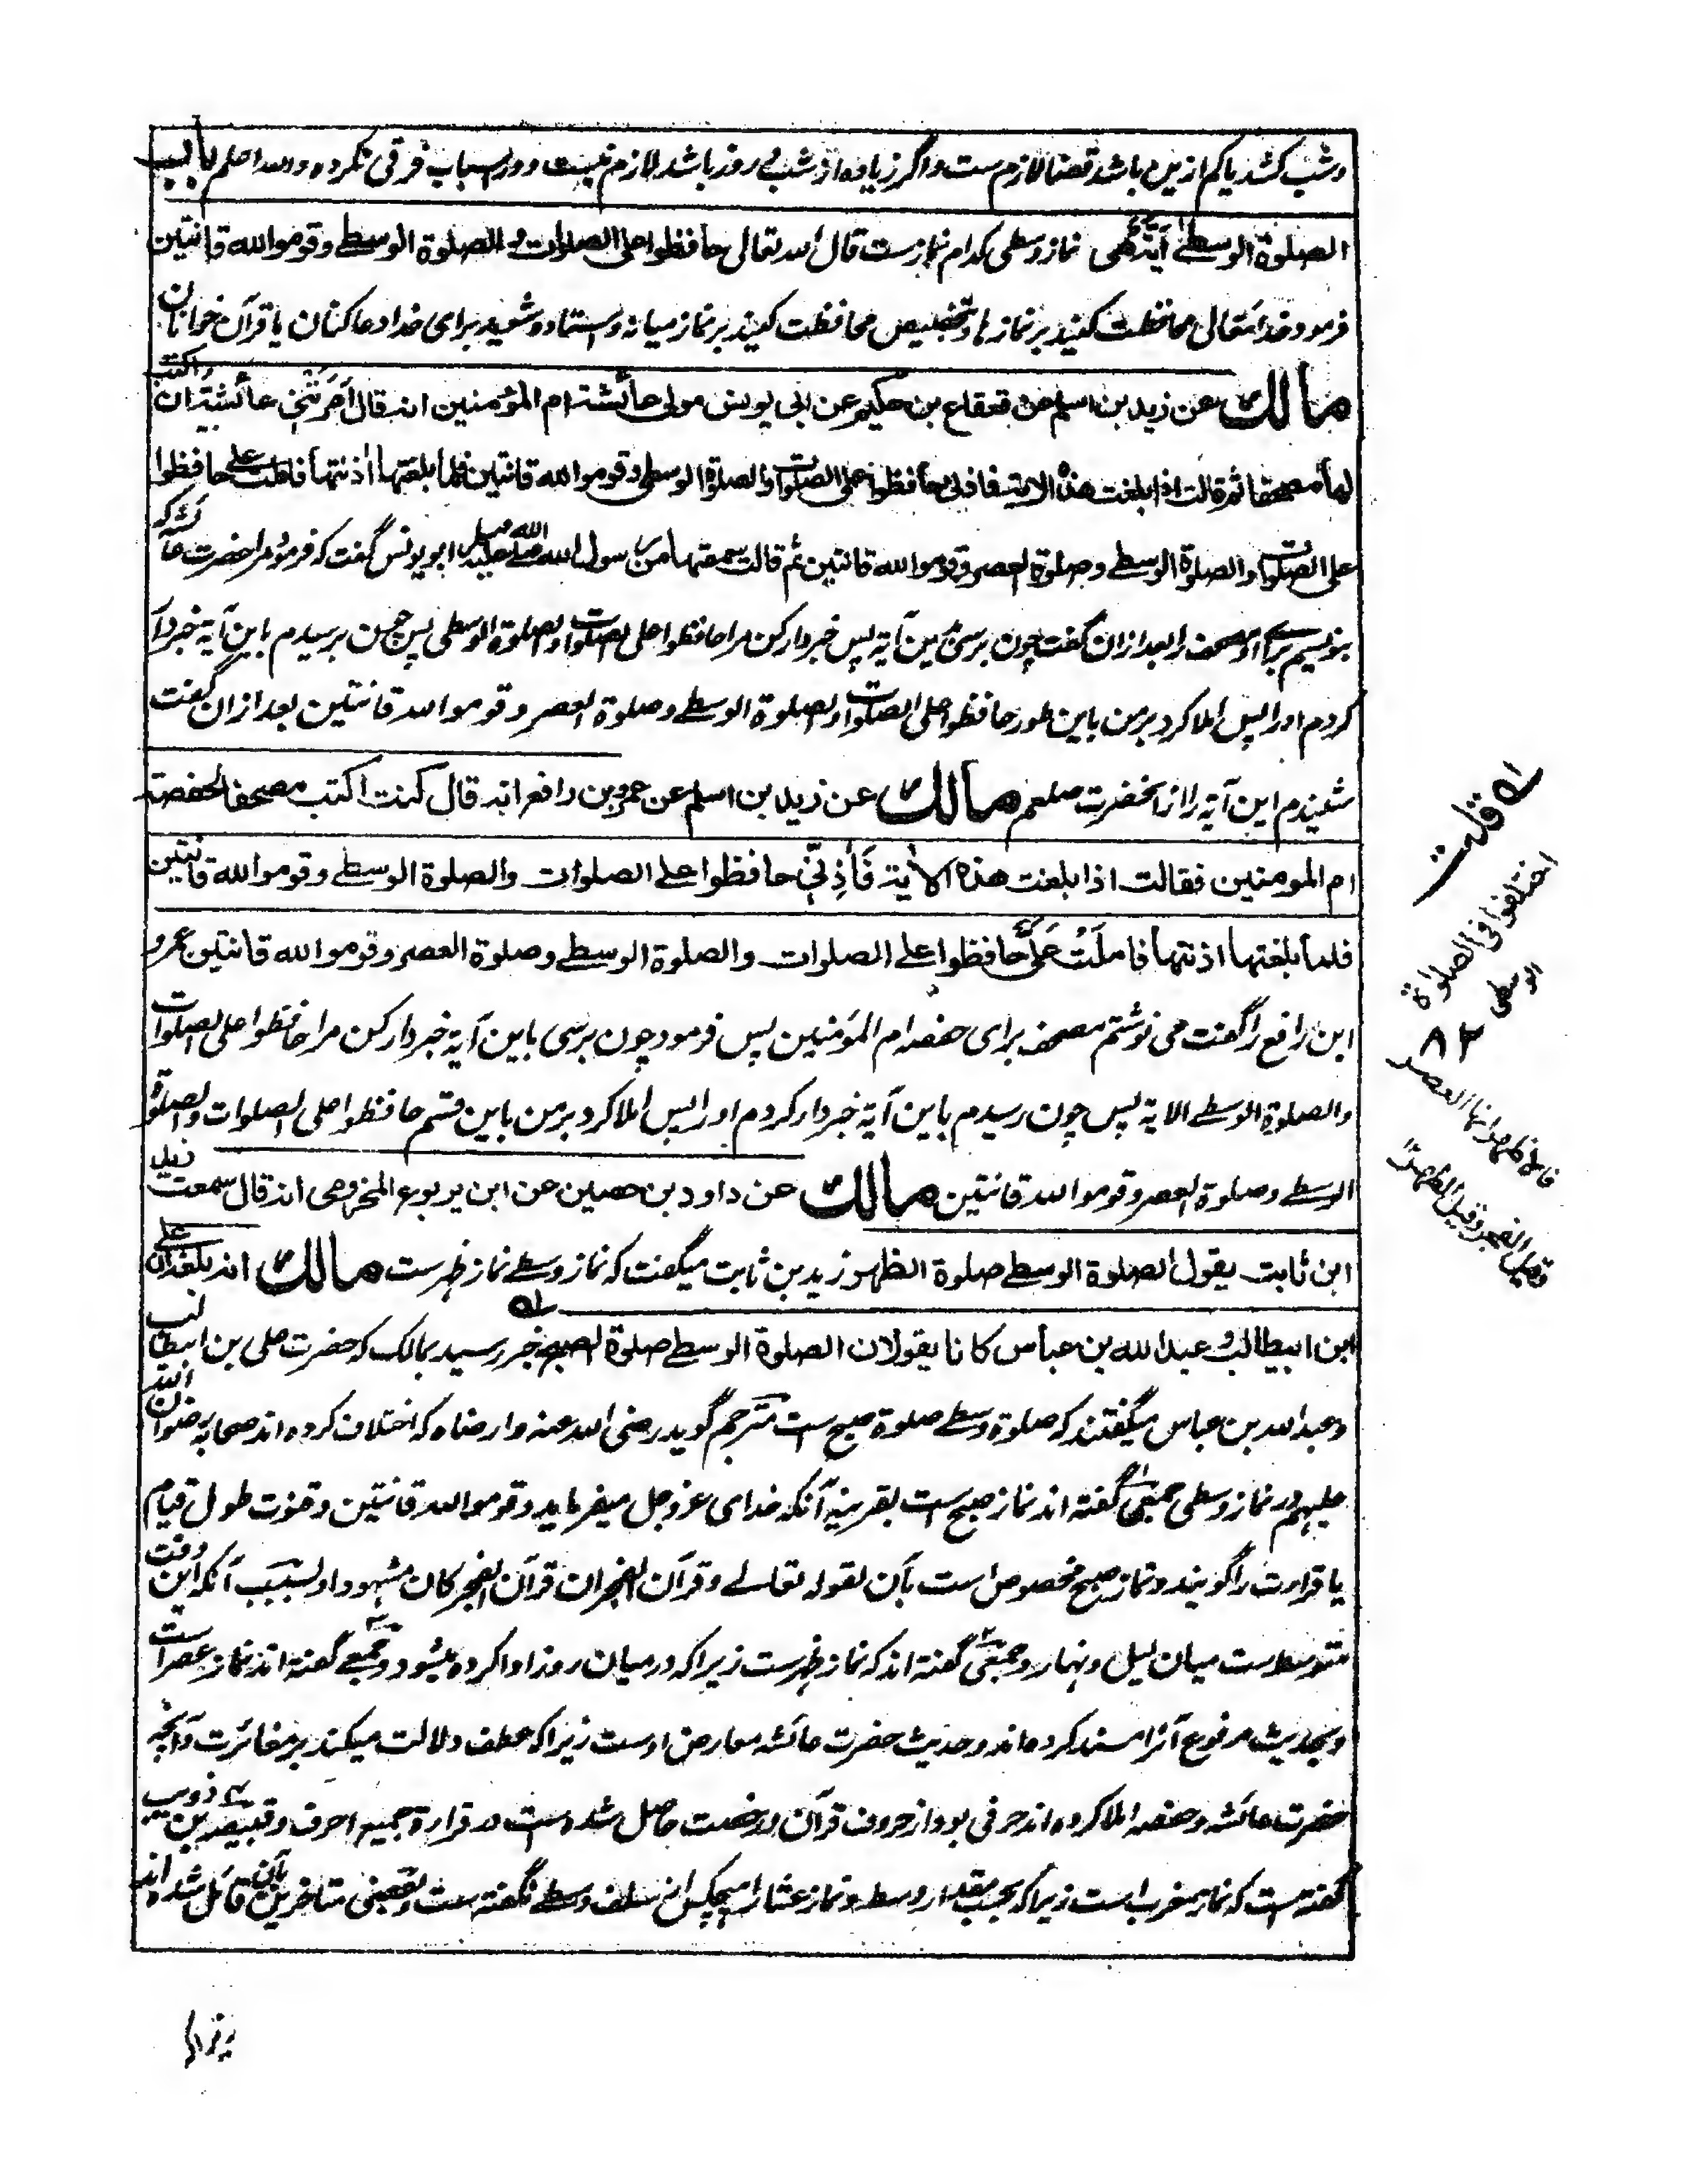 وشب کشد یا کم ازین باشد قضا لازم ست واگر زیاده از شب روز باشد لازم نیست و دور اسباب فرقی نکرده والله اعلم باب
الصلوة الوسطے ایتهی نماز وسطی کدام نمازست قال الله تعالی حافظوا علی الصلوات والصلوة الوسطے وقوموا لله قانتین
فرمود خدایتعالی محافظت کنید بر نمازها وبتخصیص محافظت کنید بر نماز میانه و استاده شوید برای خدا دعا کنان یا قرآن خوانان
مالك عن زید بن اسلم عن قعقاع بن حکیم عن ابی یونس مولی عائشة ام المؤمنین انه قال اَمَرَتْنی عائشة ان اکتب
لها مصحفا ثم قالت اذا بلغت هذه الایة فاذنی حافظوا علی الصلوات والصلوة الوسطی وقوموا لله قانتین فلما بلغتها اٰذنتها فاملت علی حافظوا
علی الصلوات والصلوة الوسطے وصلوة العصر وقوموا لله قانتین ثم قالت سمعتها من رسول الله صلے الله علیه وسلم ابو یونس گفت که فرمود مرا حضرت عائشه که
بنویسم برای او مصحف را بعد ازان گفت چون برسی باین آیة پس خبردار کن مرا حافظوا علی الصلوات والصلوة الوسطی پس چون برسیدم باین آیة خبردار
کردم او را پس املا کرد بر من باین طور حافظوا علی الصلوات والصلوة الوسطے وصلوة العصر وقوموا لله قانتین بعد ازان گفت
شنیدم این آیة را از آنحضرت صلعم مالك عن زید بن اسلم عن عمرو بن رافع انه قال کنت اکتب مصحفا لحفصة
ام المومنین فقالت اذا بلغت هذه الاٰیة فَآذِنّی حافظوا علے الصلوات والصلوة الوسطے وقوموا لله قانتین
فلما بلغتها اذنتها فاملَتْ عَلَیَّ حافظوا علے الصلوات والصلوة الوسطے وصلوة العصر وقوموا لله قانتین عمرو
ابن رافع را گفت می نوشتم مصحف برای حفصه ام المؤمنین پس فرمود چون برسی باین آیة خبردار کن مرا حافظوا علی الصلوات
والصلوة الوسطے الایة پس چون رسیدم باین آیة خبردار کردم او را پس املا کرد بر من باین قسم حافظوا علی الصلوات والصلوة
الوسطے وصلوة العصر وقوموا لله قانتین مالك عن داود بن حصین عن ابن یربوع المخزومی انه قال سمعت زید
ابن ثابت یقول الصلوة الوسطے صلوة الظهر زید بن ثابت میگفت که نماز وسطے نماز ظهر ست مالك انه بلغه ان علی
ابن ابیطالب و عبد الله بن عباس کانا یقولان الصلوة الوسطے صلوة الصبح خبر رسید بمالک که حضرت علی بن ابیطالب
وعبد الله بن عباس میگفتند که صلوة وسطے صلوة صبح ست مترجم گوید رضی الله عنه وارضاه که اختلاف کرده اند صحابه رضوان الله
علیهم در نماز وسطی جمعی گفته اند نماز صبح ست بقرینه آنکه خدای عز وجل میفرماید وقوموا لله قانتین وقنوت طول قیام
یا قراءت را گویند و نماز صبح مخصوص است بآن لقوله تعالے وقرآن الفجر ان قرآن الفجر کان مشهودا وبسبب آنکه این وقت
متوسط ست میان لیل و نهار و جمعی گفته اند که نماز ظهر ست زیرا که در میان روز ادا کرده میشود و جمعے گفته اند نماز عصر است
وبحدیث مرفوع آنرا مسند کرده اند و حدیث حضرت عائشه معارض اوست زیرا که عطف دلالت میکند بر مغائرت و آنچه
حضرت عائشه و حفصه املا کرده اند حرفی بود از حروف قرآن و رخصت حاصل شده است در قراءة جمیع احرف و قبیصة بن ذویب
گفته است که نماز مغرب است زیرا که بحسب مقدار وسط و نماز عشا را هیچکس از سلف وسطے نگفته ست و بعضی متاخرین بآن قائل شده اند
له قلت
اختلفوا فی الصلوٰة
الوسطی
٨٢
فاظهرها انها العصر
وقیل الفجر وقیل الظهر